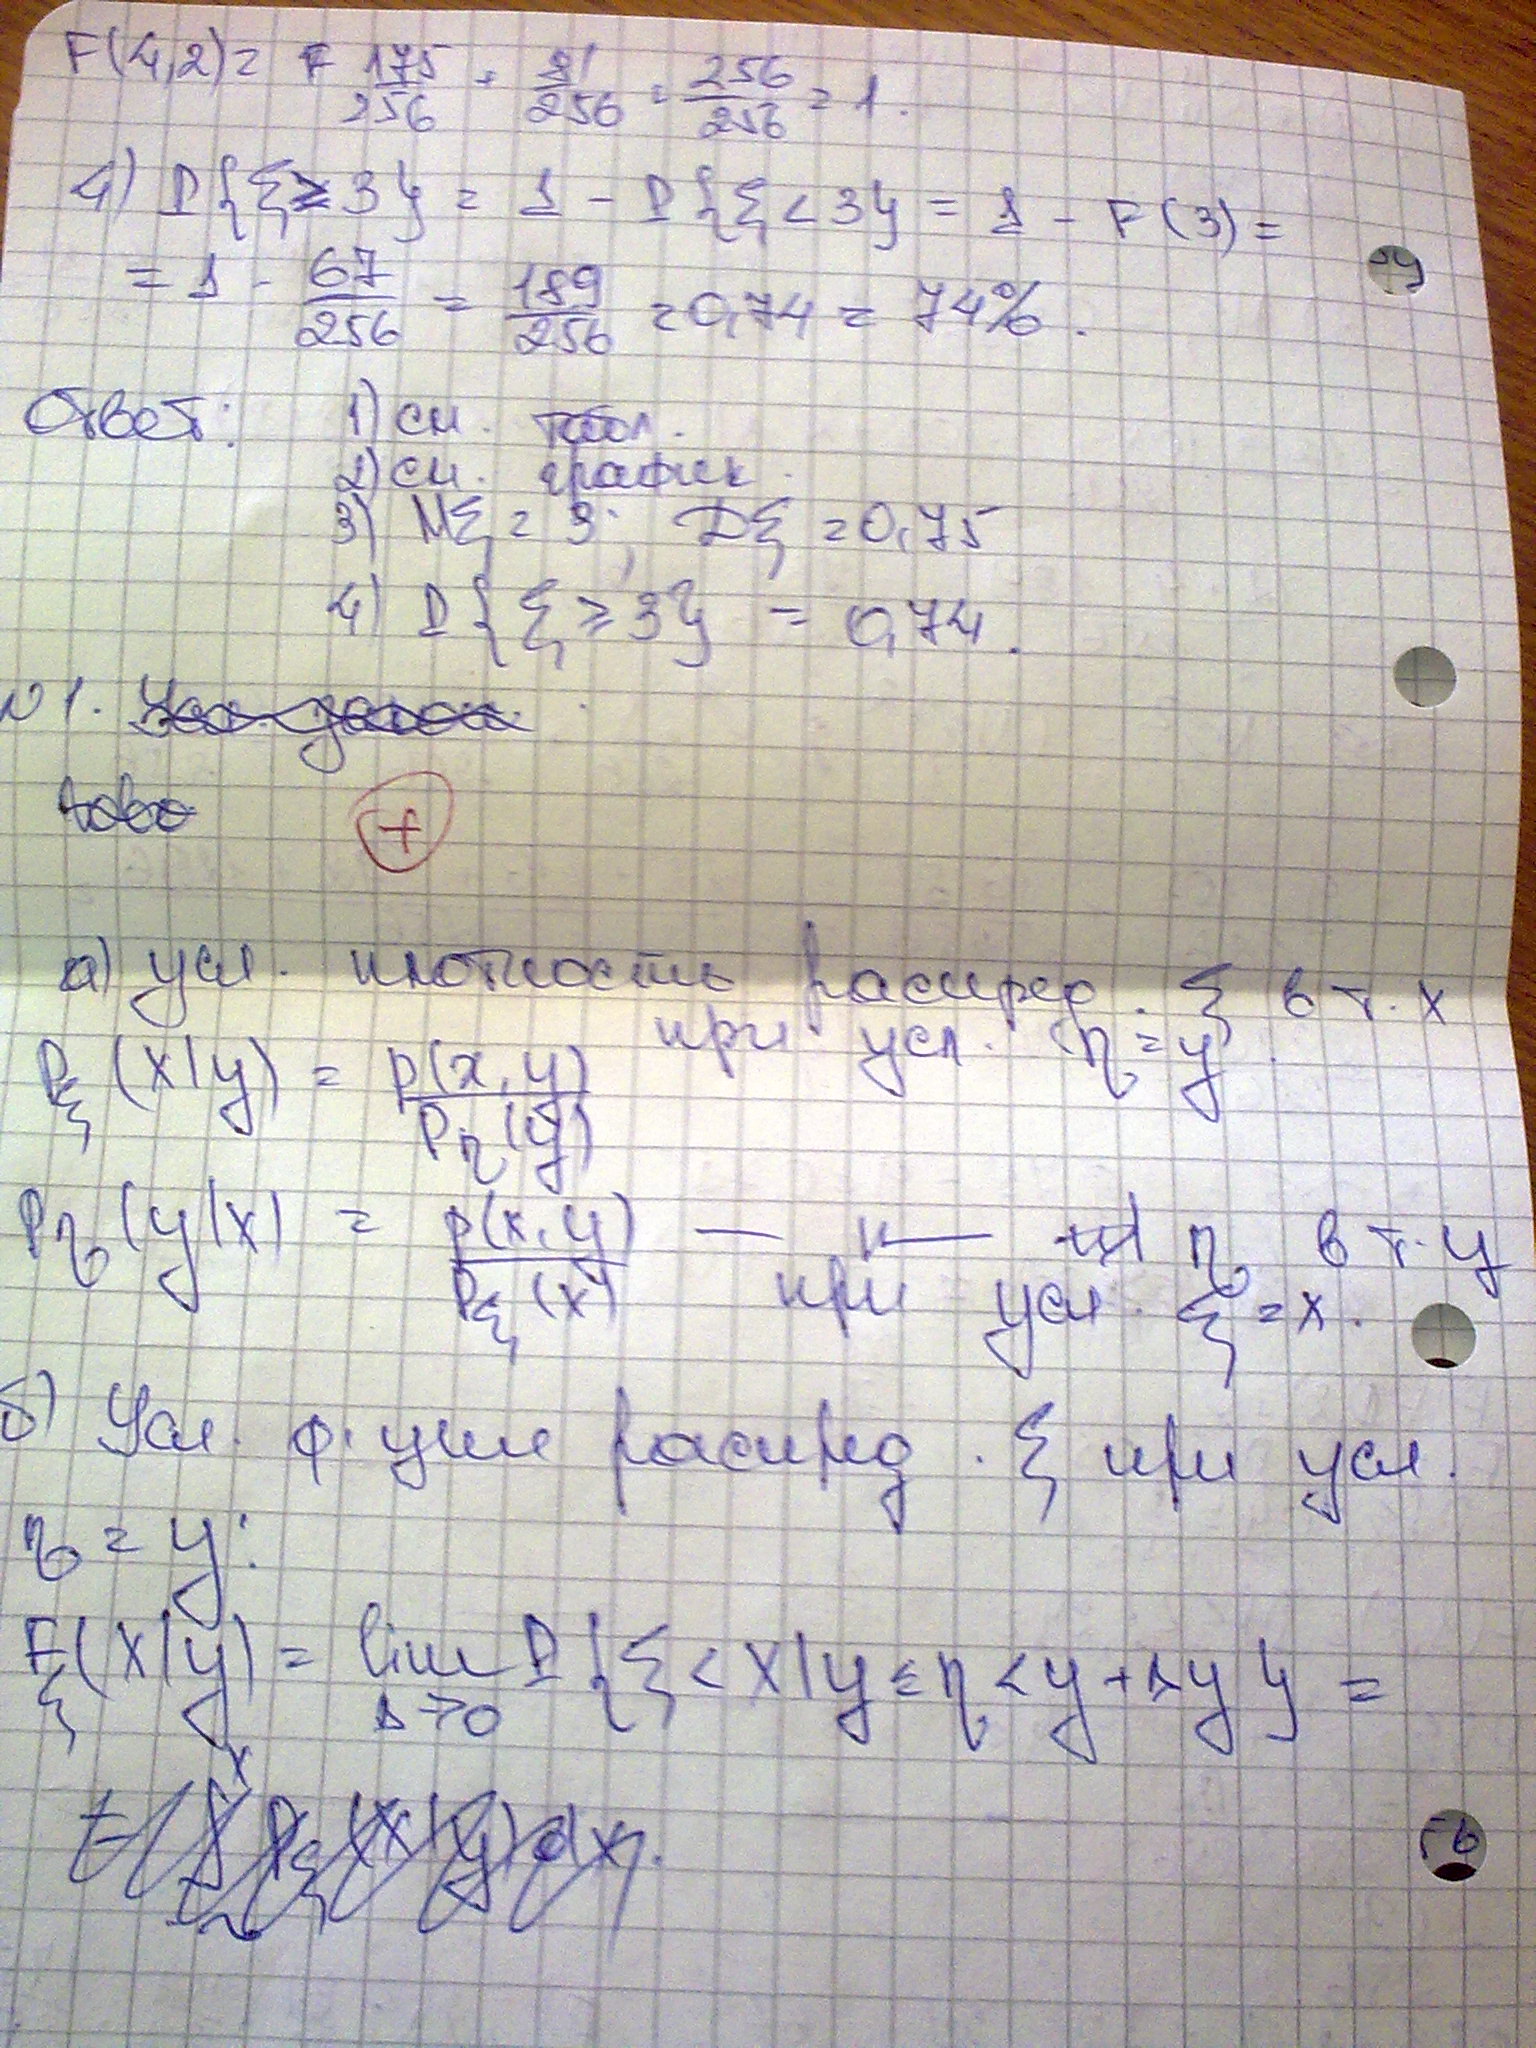 F(4,2) = F 175/256 + 81/256 = 256/256 = 1.
4) P{ξ ≥ 3} = 1 - P{ξ < 3} = 1 - F(3) =
= 1 - 67/256 = 189/256 = 0,74 = 74%.
Ответ: 1) см. табл.
2) см. график.
3) Mξ = 3; Dξ = 0,75
4) P{ξ ≥ 3} = 0,74.
N1.
а) усл. плотность распред. ξ в т. x
при усл. η = y.
Pξ(x|y) = p(x,y)/Pη(y)
Pη(y|x) = p(x,y)/Pξ(x) — н — η в т. y
при усл. ξ = x.
б) Усл. ф-ция распред. ξ при усл.
η = y:
Fξ(x|y) = lim P{ξ < x | y ≤ η < y + Δy} =
Δ→0